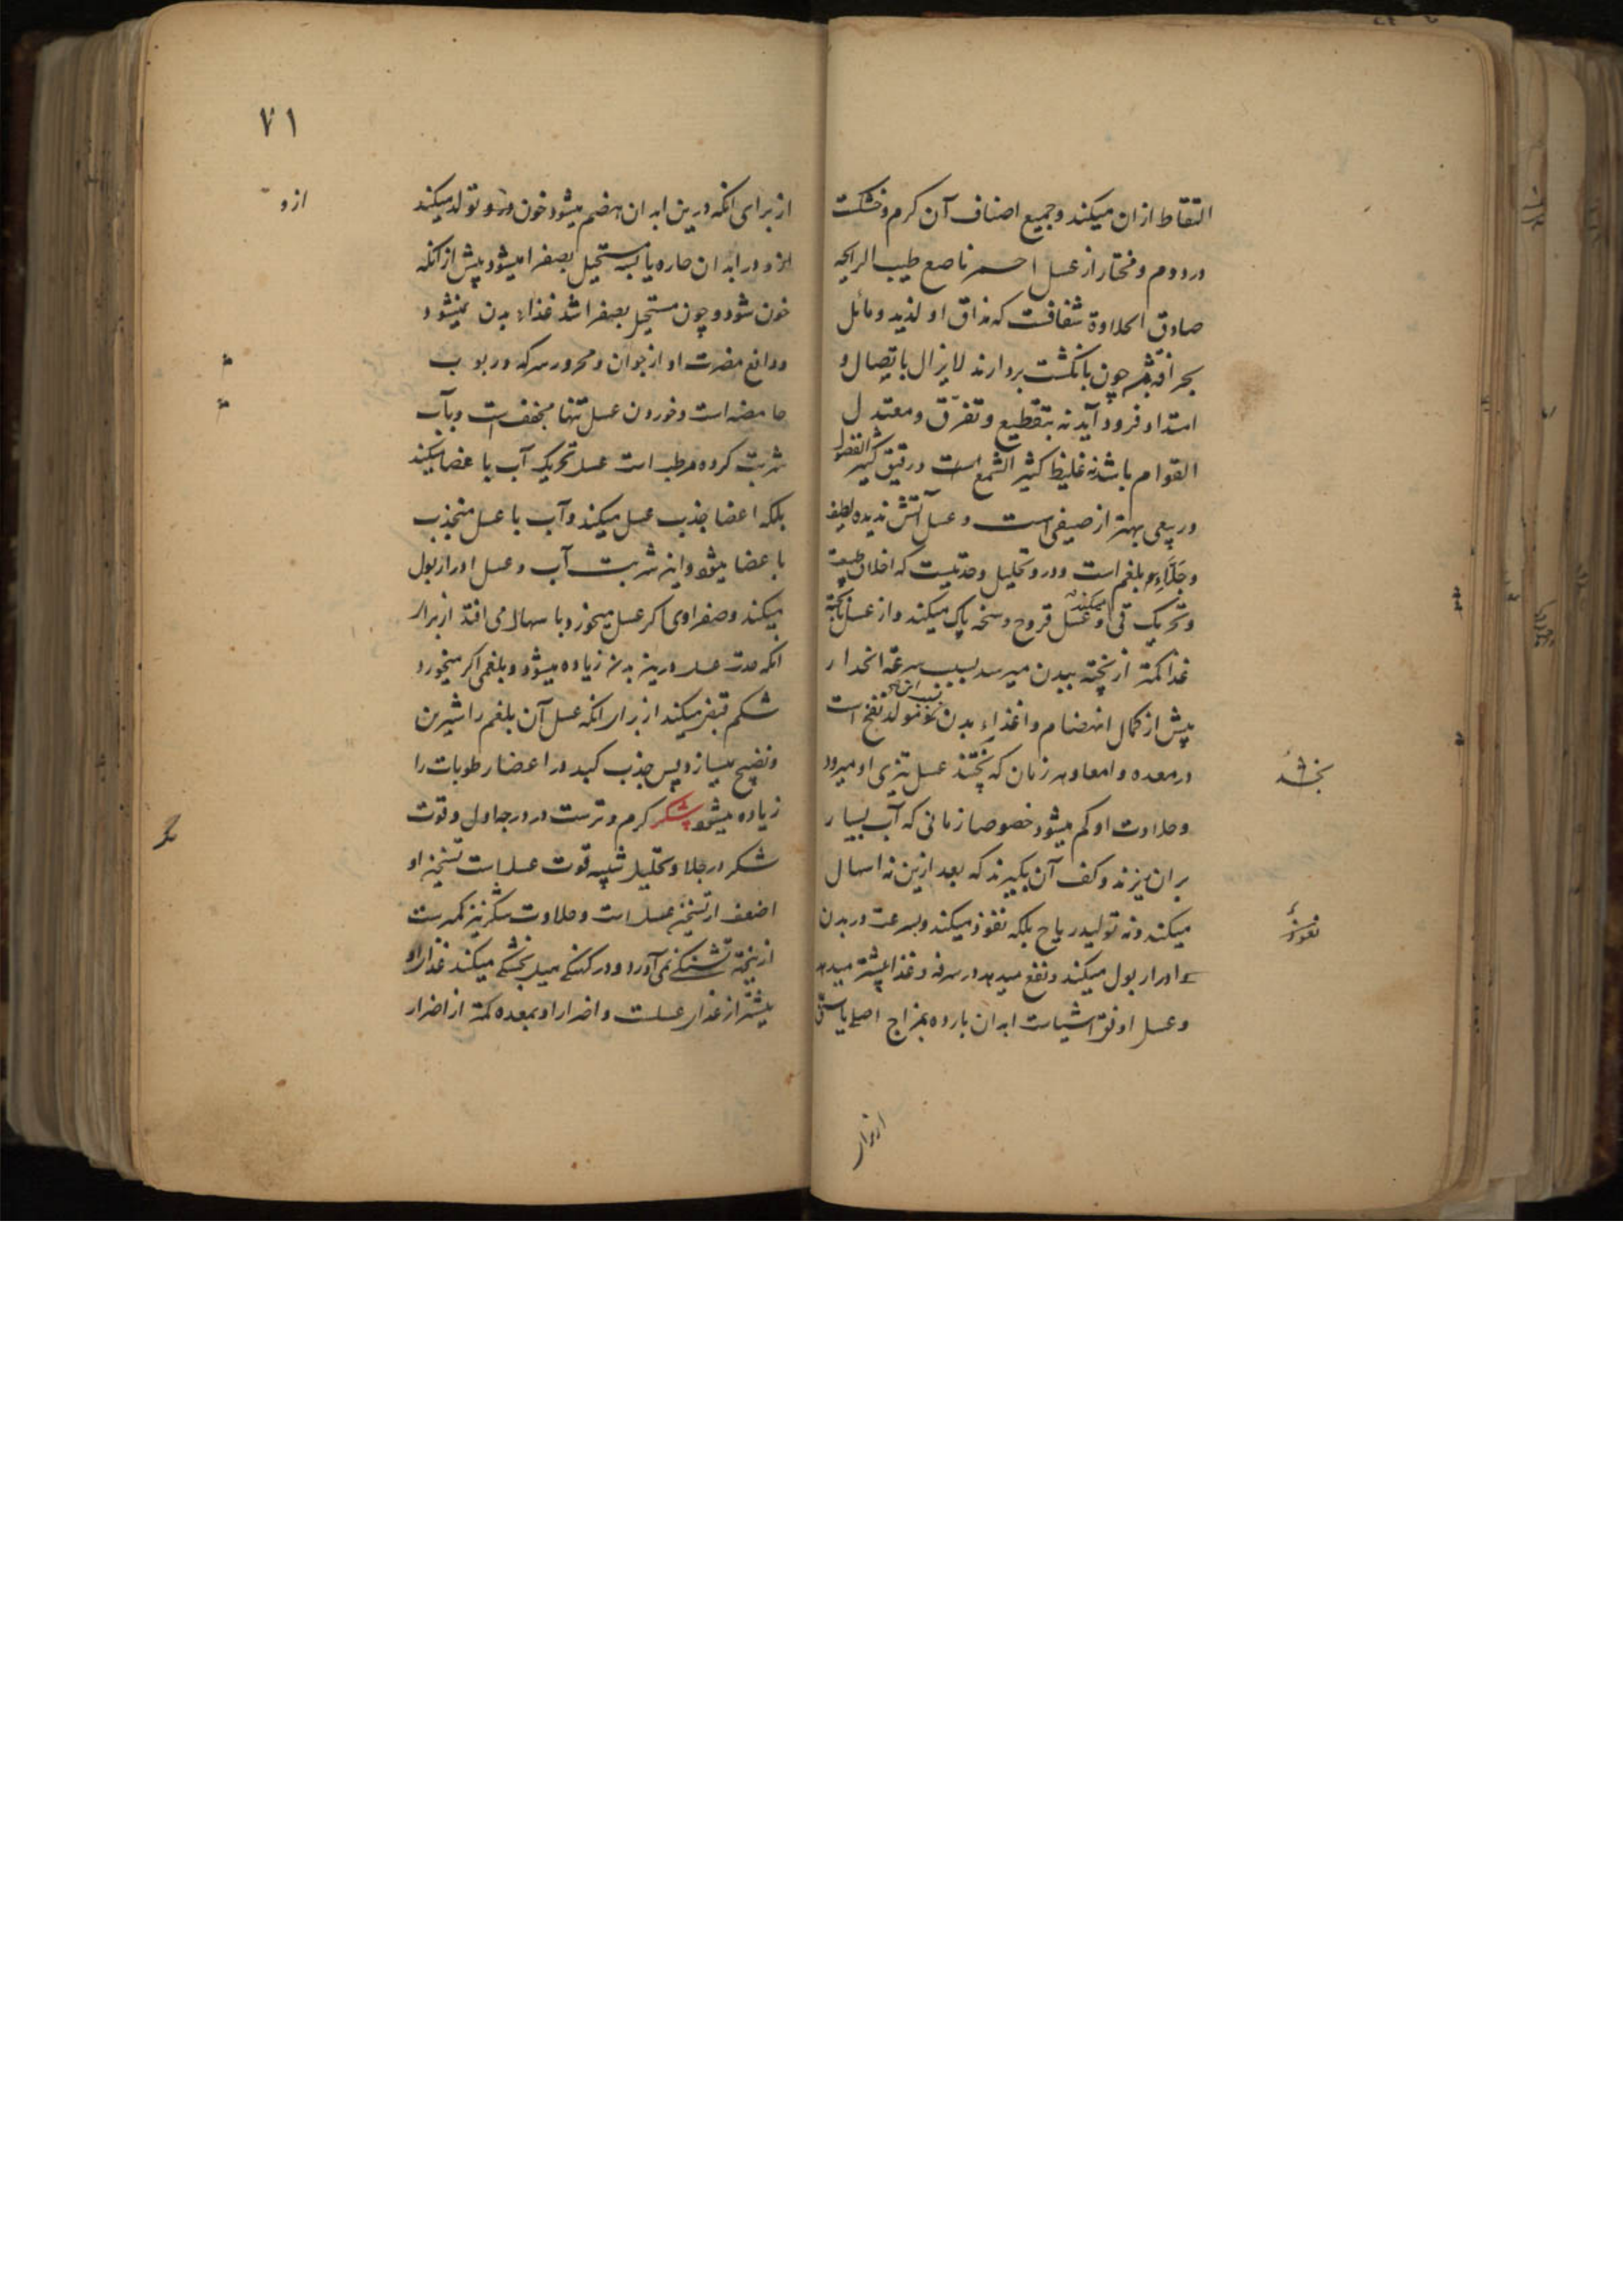 التقاط ازان میکند و جمیع اصناف آن کرم و خشکست
در دوم و مختار از عسل احمر ناصع طیب الرایحه
صادق الحلاوة شفافست که مذاق او لذیذ و مائل
بحرافة چون بانکشت بردارند لایزال باتصال و
امتداد فرود آید نه بتقطیع و تفرق و معتدل
القوام باشد نه غلیظ کثیر الشمع است و رقیق کثیر الفضول
و ربیعی بهتر از صیفی است و عسل آتش ندیده لطیف
و جلاء بلغم است و در و تحلیل و حدتیست که اطلاق طبیعت
و تحریک قی میکند و عسل قروح وسخه پاک میکند و از عسل ناپخته
غذا کمتر از پخته ببدن میرسد بسبب سرعة انحدار
پیش از کمال انهضام و اغذاء بدن مولد نفخ است
در معده و امعا و هر زمان که پختند عسل تیزی او میرود
بخشد
و حلاوت او کم میشود خصوصا زمانی که آب بسیار
بران ریزند و کف آن بکیرند که بعد ازین نه اسهال
میکند و نه تولید ریاح بلکه نفوذ میکند و بسرعت در بدن
نفوذ
و ادرار بول میکند و نفع میدهد در سرفه و غذا بیشتر میدهد
و عسل اوفق اشیاست ابدان بارده بمزاج اصلی یا سنی
از برای
۷۱
از برای انکه درین ابدان هضم میشود خون درو تولد میکند
ازو
ازو و در ابدان حاره یابسه مستحیل بصفرا میشود پیش از انکه
خون شود و چون مستحیل بصفرا شد غذاء بدن نمیشود
و دافع مضرت او از جوان و محرور سرکه و ربوب
حامضه است و خوردن عسل تنها مجفف است و بآب
شربت کرده مرطب است عسل تحریک آب باعضا میکند
بلکه اعضا جذب عسل میکند و آب با عسل منجذب
باعضا میشود و این شربت آب و عسل ادرار بول
میکند و صفراوی اکر عسل میخورد باسهال می افتد از برای
انکه حدت عسل درین بدن زیاده میشود و بلغمی اکر میخورد
شکم قبض میکند از برای انکه عسل آن بلغم را شیرین
و نضیج میسازد پس جذب کبد و اعضا رطوبات را
زیاده میشود شکر کرم و ترست در درجه اول و قوت
شکر در جلا و تحلیل شبیه قوت عسل است تسخین او
اضعف از تسخین عسل است و حلاوت شکر نیز کمترست
ازینجهة تشنکی نمی آورد و در کهنکی میل بخشکی میکند غذای او
بیشتر از غذای عسلست و اضرار او بمعده کمتر از اضرار